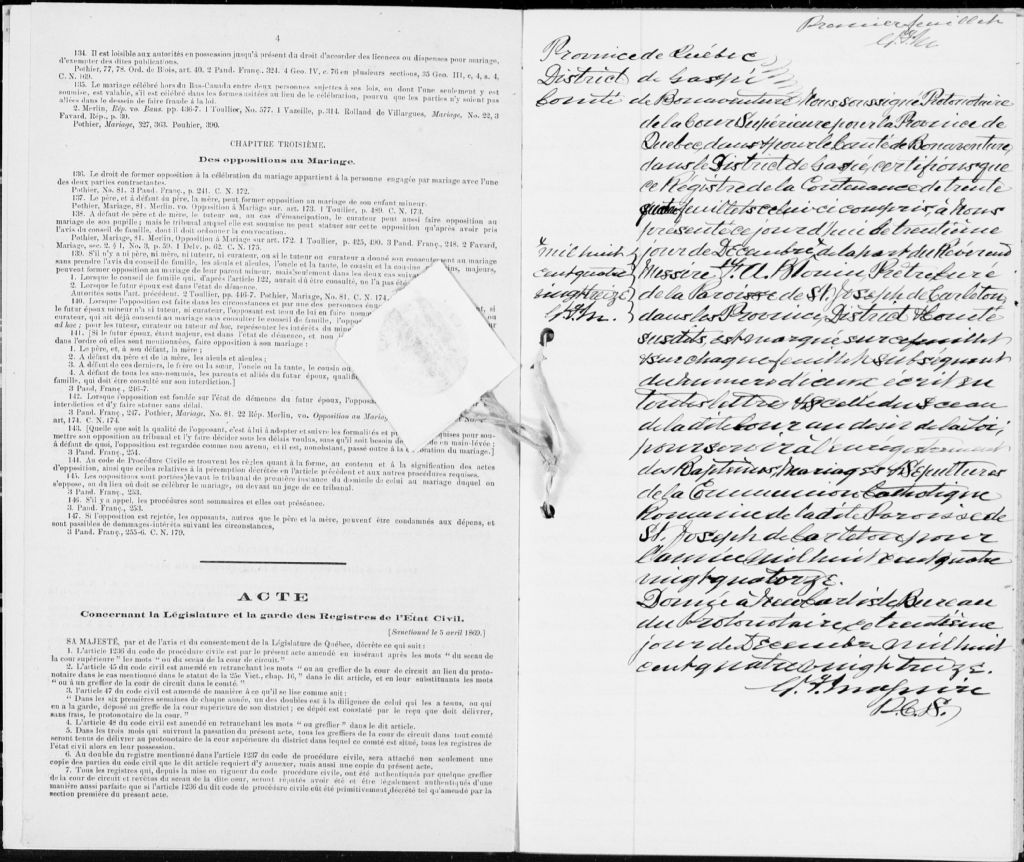 4
134. Il est loisible aux autorités en possession jusqu'à présent du droit d'accorder des licences ou dispenses pour mariage,
d'exempter des dites publications.
Pothier, 77, 78. Ord. de Blois, art. 40. 2 Pand. Franç. 324. 4 Geo. IV, c. 76 en plusieurs sections, 35 Geo. III, c. 4, s. 4,
C. N. 169.
135. Le mariage célébré hors du Bas-Canada entre deux personnes sujettes à ses lois, ou dont l'une seulement y est
soumise, est valable, s'il est célébré dans les formes usitées au lieu de la célébration, pourvu que les parties n'y soient pas
allées dans le dessein de faire fraude à la loi.
2. Merlin, Rép. vo. Bans. pp. 436-7. 1 Toullier, No. 577. 1 Vazeille, p. 314. Rolland de Villargues, Mariage, No. 22, 3
Favard, Rép., p. 30.
Pothier, Mariage, 327, 363. Pouhier, 390.
CHAPITRE TROISIÈME.
Des oppositions au Mariage.
136. Le droit de former opposition à la célébration du mariage appartient à la personne engagée par mariage avec l'une
des deux parties contractantes.
Pothier, No. 81. 3 Pand. Franç., p. 241. C. N. 172.
137. Le père, et à défaut du père, la mère, peut former opposition au mariage de son enfant mineur.
Pothier, Mariage, 81. Merlin, vo. Opposition à Mariage sur art. 173. 1 Toullier, p. 489. C. N. 173.
138. A défaut de père et de mère, le tuteur ou, au cas d'émancipation, le curateur peut aussi faire opposition au
mariage de son pupille; mais le tribunal auquel elle est soumise ne peut statuer sur cette opposition qu'après avoir pris
l'avis du conseil de famille, dont il doit ordonner la convocation.
Pothier, Mariage, 81. Merlin, Opposition à Mariage sur art. 172. 1 Toullier, p. 425, 490. 3 Pand. Franç., 248. 2 Favard,
Mariage, sec. 2, § 1, No. 3, p. 59. 1 Delv. p. 62. C. N. 175.
139. S'il n'y a ni père, ni mère, ni tuteur, ni curateur, ou si le tuteur ou curateur a donné son consentement au mariage
sans prendre l'avis du conseil de famille, les aïeuls et aïeules, l'oncle et la tante, le cousin et la cousine majeurs,
peuvent former opposition au mariage de leur parent mineur, mais seulement dans les deux cas
1. Lorsque le conseil de famille qui, d'après l'article 122, aurait dû être consulté, ne l'a pas
2. Lorsque le futur époux est dans l'état de démence.
Autorités sous l'art. précédent. 2 Toullier, pp. 446-7. Pothier, Mariage, No. 81. C. N. 174.
140. Lorsque l'opposition est faite dans les circonstances et par une des personnes
le futur époux mineur n'a ni tuteur, ni curateur, l'opposant est tenu de lui en faire
curateur, qui ait déjà consenti au mariage sans consulter le conseil de famille,
ad hoc; pour les tuteur, curateur ou tuteur ad hoc, représenter les intérêts du
141. [Si le futur époux, étant majeur, est dans l'état de démence, et non
dans l'ordre où elles sont mentionnées, faire opposition à son mariage:
1. Le père et, à son défaut, la mère;
2. A défaut du père et de la mère, les aïeuls et aïeules;
3. A défaut de ces derniers, le frère ou la sœur, l'oncle ou la tante, le cousin ou
4. A défaut de tous les sus-nommés, les parents et alliés du futur époux,
famille, qui doit être consulté sur son interdiction.]
3 Pand. Franç., 246-7.
142. Lorsque opposition est fondée sur l'état de démence du futur époux,
interdiction et d'y faire statuer sans délai.
3 Pand. Franç., 247. Pothier, Mariage, No. 81. 22 Rép. Merlin, vo. Opposition au
art. 174. C. N. 174.
143. [Quelle que soit la qualité de l'opposant, c'est à lui à adopter et suivre les formalités et requises pour sou-
mettre son opposition au tribunal et l'y faire décider sous les délais voulus, sans qu'il soit besoin de en main-levée;
à défaut de quoi, l'opposition est regardée comme non avenu, et il est, nonobstant, passé outre à la célébration du mariage.]
3 Pand. Franç., 254.
144. Au code de Procédure Civile se trouvent les règles quant à la forme, au contenu et à la signification des actes
d'opposition, ainsi que celles relatives à la péremption décrétée en l'article précédent et aux autres procédures requises.
145. Les oppositions sont portées devant le tribunal de première instance du domicile de celui au mariage duquel on
s'oppose, ou du lieu où doit se célébrer le mariage, ou devant un juge de ce tribunal.
3 Pand. Franç., 253.
146. S'il y a appel, les procédures sont sommaires et elles ont préséance.
3. Pand. Franç., 253.
147. Si l'opposition est rejetée, les opposants, autres que le père et la mère, peuvent être condamnés aux dépens, et
sont passibles de dommages-intérêts suivant les circonstances,
3 Pand. Franç., 255-6. C. N. 179.
ACTE
Concernant la Législature et la garde des Registres de l'Etat Civil.
[Sanctionné le 5 avril 1869.]
SA MAJESTÉ, par et de l'avis et du consentement de la Législature de Québec, décrète ce qui suit:
1. L'article 1236 du code de procédure civile est par le présent acte amendé en insérant après les mots "du sceau de
la cour supérieure" les mots "ou du sceau de la cour de circuit."
2. L'article 45 du code civil est amendé en retranchant les mots "ou au greffier de la cour de circuit au lieu du proto-
notaire dans le cas mentionné dans le statut de la 25e Vict., chap. 16," dans le dit article, et en leur substituant les mots
"ou à un greffier de la cour de circuit dans le comté."
3. l'article 47 du code civil est amendé de manière à ce qu'il se lise comme suit:
"Dans les six premières semaines de chaque année, un des doubles est à la diligence de celui qui les a tenus, ou qui
en a la garde, déposé au greffe de la cour supérieure de son district; ce dépôt est constaté par le reçu que doit délivrer,
sans frais, le protonotaire de la cour."
4. L'article 48 du code civil est amendé en retranchant les mots "ou greffier" dans le dit article.
5. Dans les trois mois qui suivront la passation du présent acte, tous les greffiers de la cour de circuit dans tout comté
seront tenus de délivrer au protonotaire de la cour supérieure du district dans lequel ce comté est situé, tous les registres de
l'état civil alors en leur possession.
6. Au double du registre mentionné dans l'article 1237 du code de procédure civile, sera attaché non seulement une
copie des parties du code civil que le dit article requiert d'y annexer, mais aussi une copie du présent acte.
7. Tous les registres qui, depuis la mise en vigueur du code procédure civile, ont été authentiqués par quelque greffier
de la cour de circuit et revêtus du sceau de la dite cour, seront réputés avoir été et être légalement authentiqués d'une
manière aussi parfaite que si l'article 1236 du dit code de procédure civile eût été primitivement décrété tel qu'amendé par la
section première du présent acte.
Premier feuillet
Province de Québec
District de Gaspé
Comté de Bonaventure Nous soussigné Protonotaire
de la Cour Supérieure pour la Province de
Québec, dans & pour le Comté de Bonaventure,
dans le District de Gaspé, certifions que
ce Régistre de la Contenance de trente
feuillets celui ci compris, à Nous
présenté ce jourd'hui le trentième
jour de Décembre de la part du Révérend
Messire A. Blouin Prêtre Curé
de la Paroisse de St. Joseph de Carleton,
dans les Province, District & Comté
susdits, est marqué sur ce feuillet
& sur chaque feuillet subséquent
du numero d'iceux écrit en
toutes lettres & scellé du sceau
de la dite Cour au désir de la loi,
pour servir à l'enrégistrement
des Baptêmes, Mariages & Sépultures
de la Communion Catholique
Romaine de la dite Paroisse de
St. Joseph de Carleton pour
l'année mil huit cent quatre
vingt quatorze.
Donné à New Carlisle Bureau
du Protonotaire, ce trentième
jour de Décembre mil huit
cent quatre vingt treize.
P.C.S.
mil huit
cent quatre
vingt treize